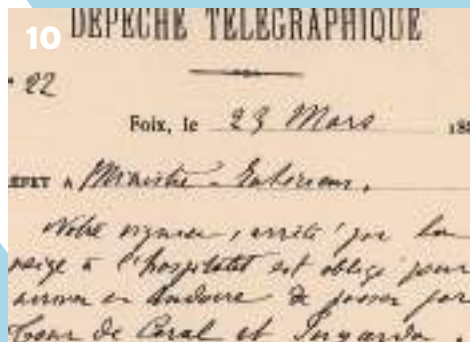 10
DÉPÊCHE TÉLÉGRAPHIQUE
22
Foix, le 23 Mars 188
ÉFET A Ministre Intérieur,
Notre viguier, arrêté par la
neige à l'hospitalet est obligé pour
arriver en Andorre de passer par
Tour de Carol et